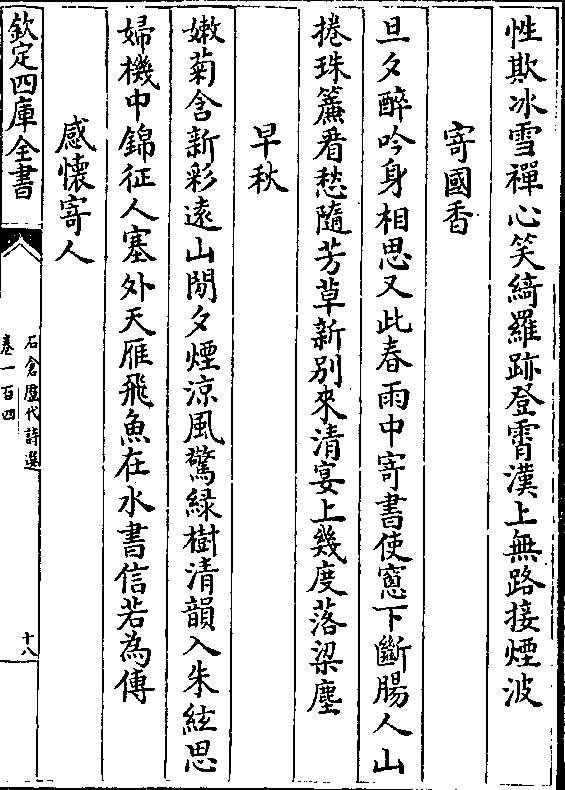 性欺冰雪禪心笑綺羅跡登霄漢上無路接煙波
寄國香
旦夕醉吟身相思又此春雨中寄書使窻下斷腸人山
捲珠簾看愁隨芳草新别來清宴上幾度落梁塵
早秋
嫩菊含新彩遠山閒夕煙涼風驚緑樹清韻入朱絃思
婦機中錦征人塞外天雁飛魚在水書信若為傳
感懷寄人
欽定四庫全書
石倉歷代詩選
卷一百四
十八